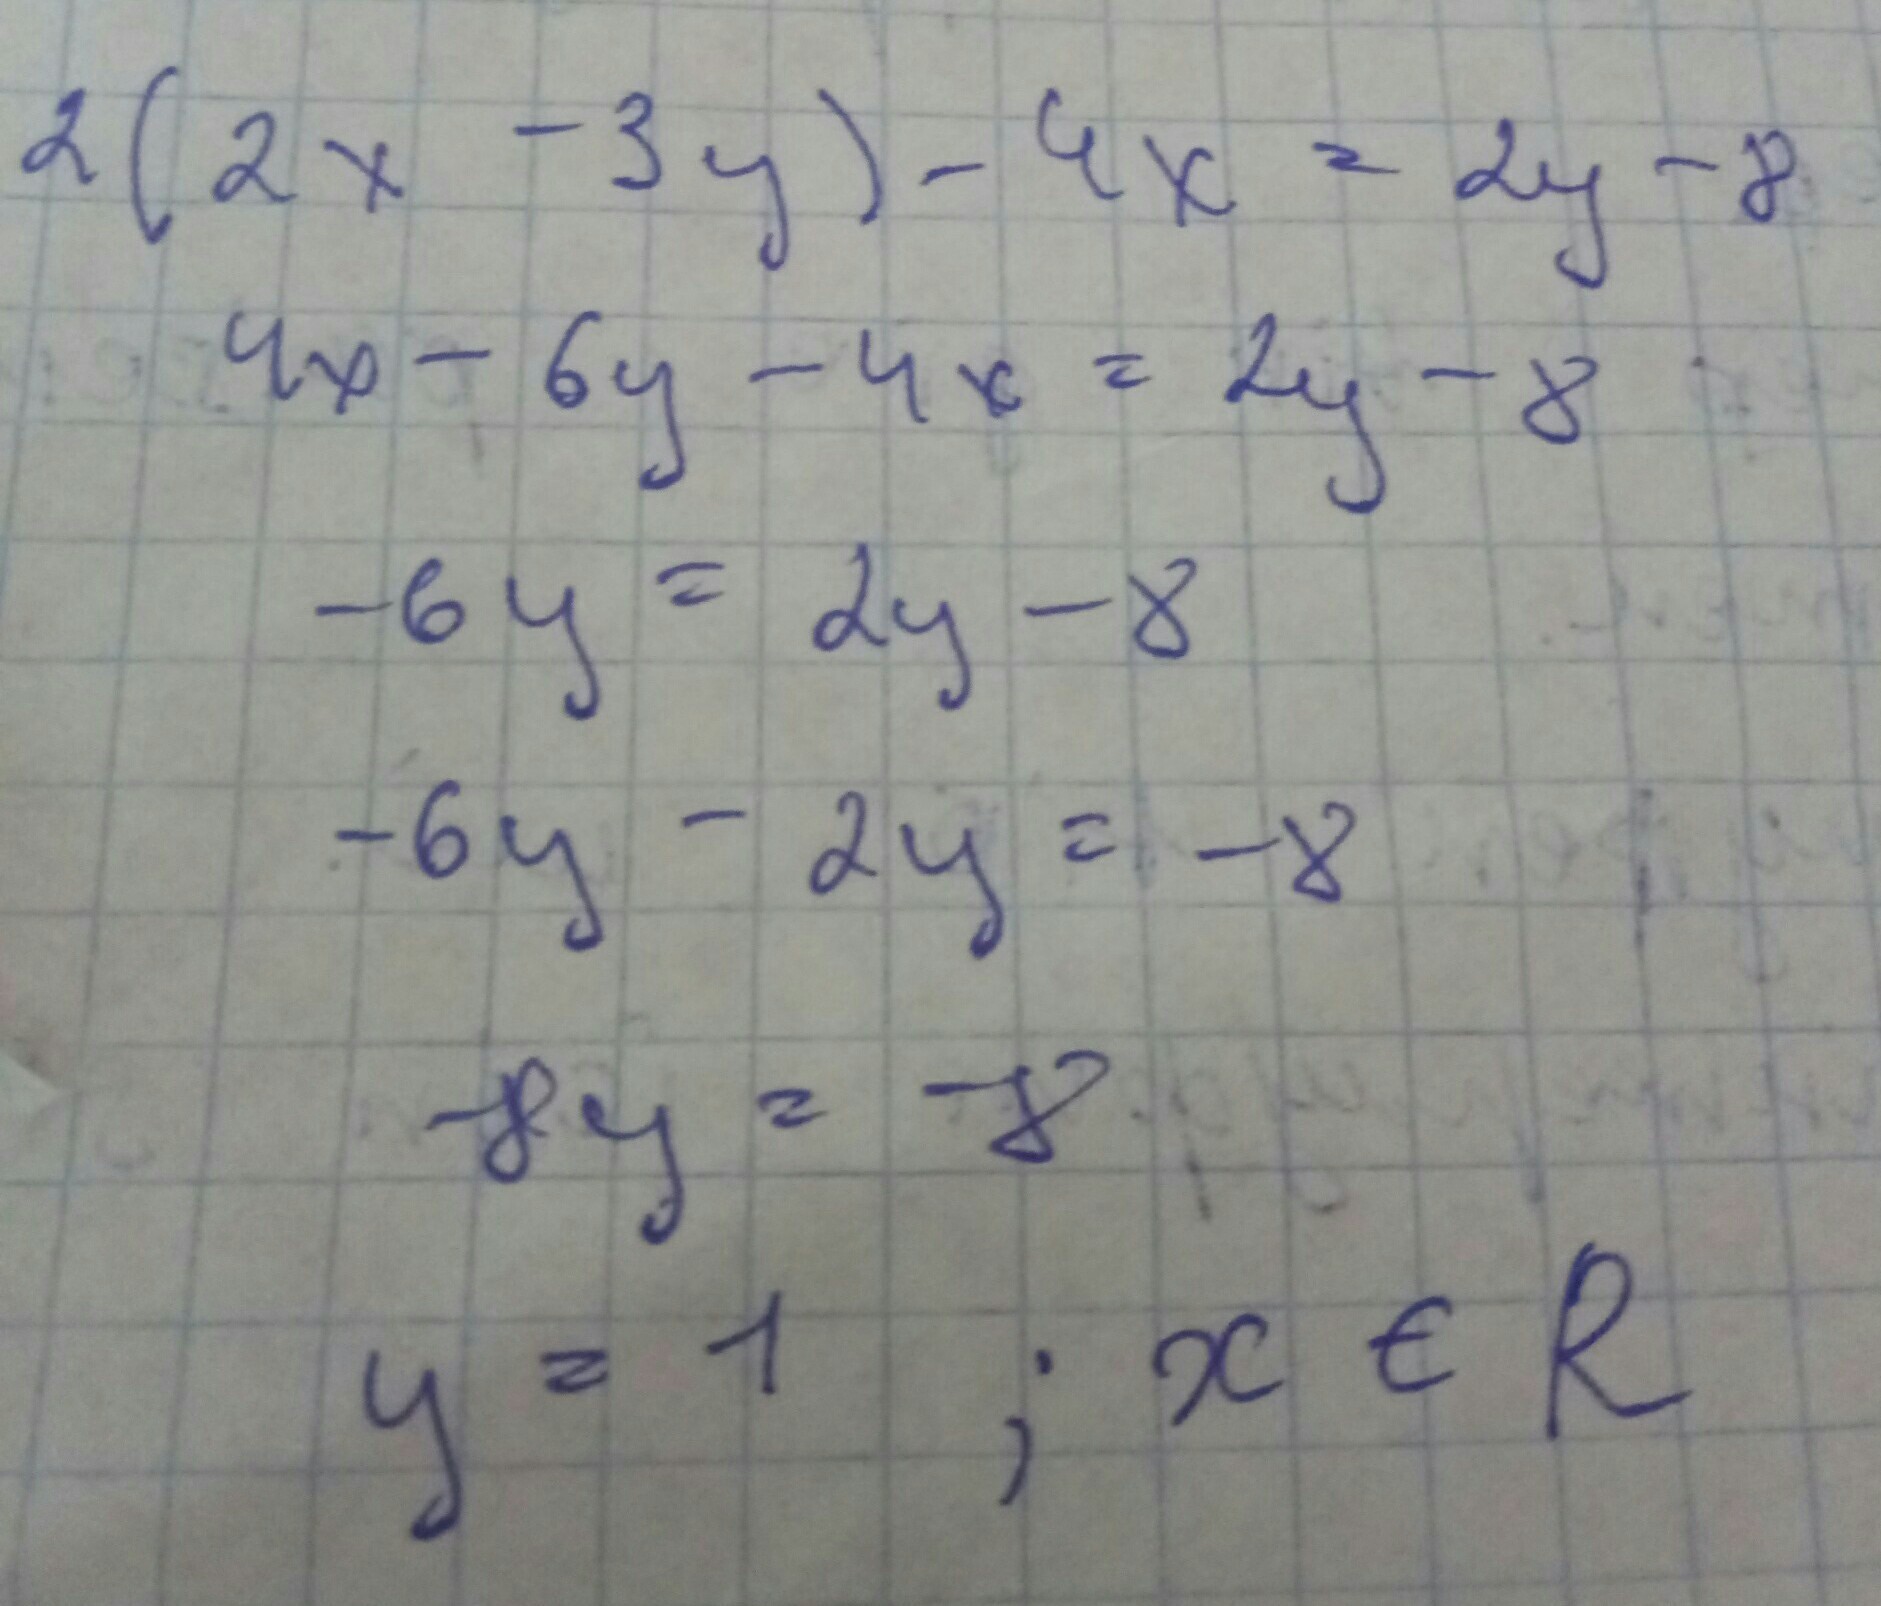 2(2x - 3y) - 4x = 2y - 8
4x - 6y - 4x = 2y - 8
-6y = 2y - 8
-6y - 2y = -8
-8y = -8
y = 1 ; x ∈ R